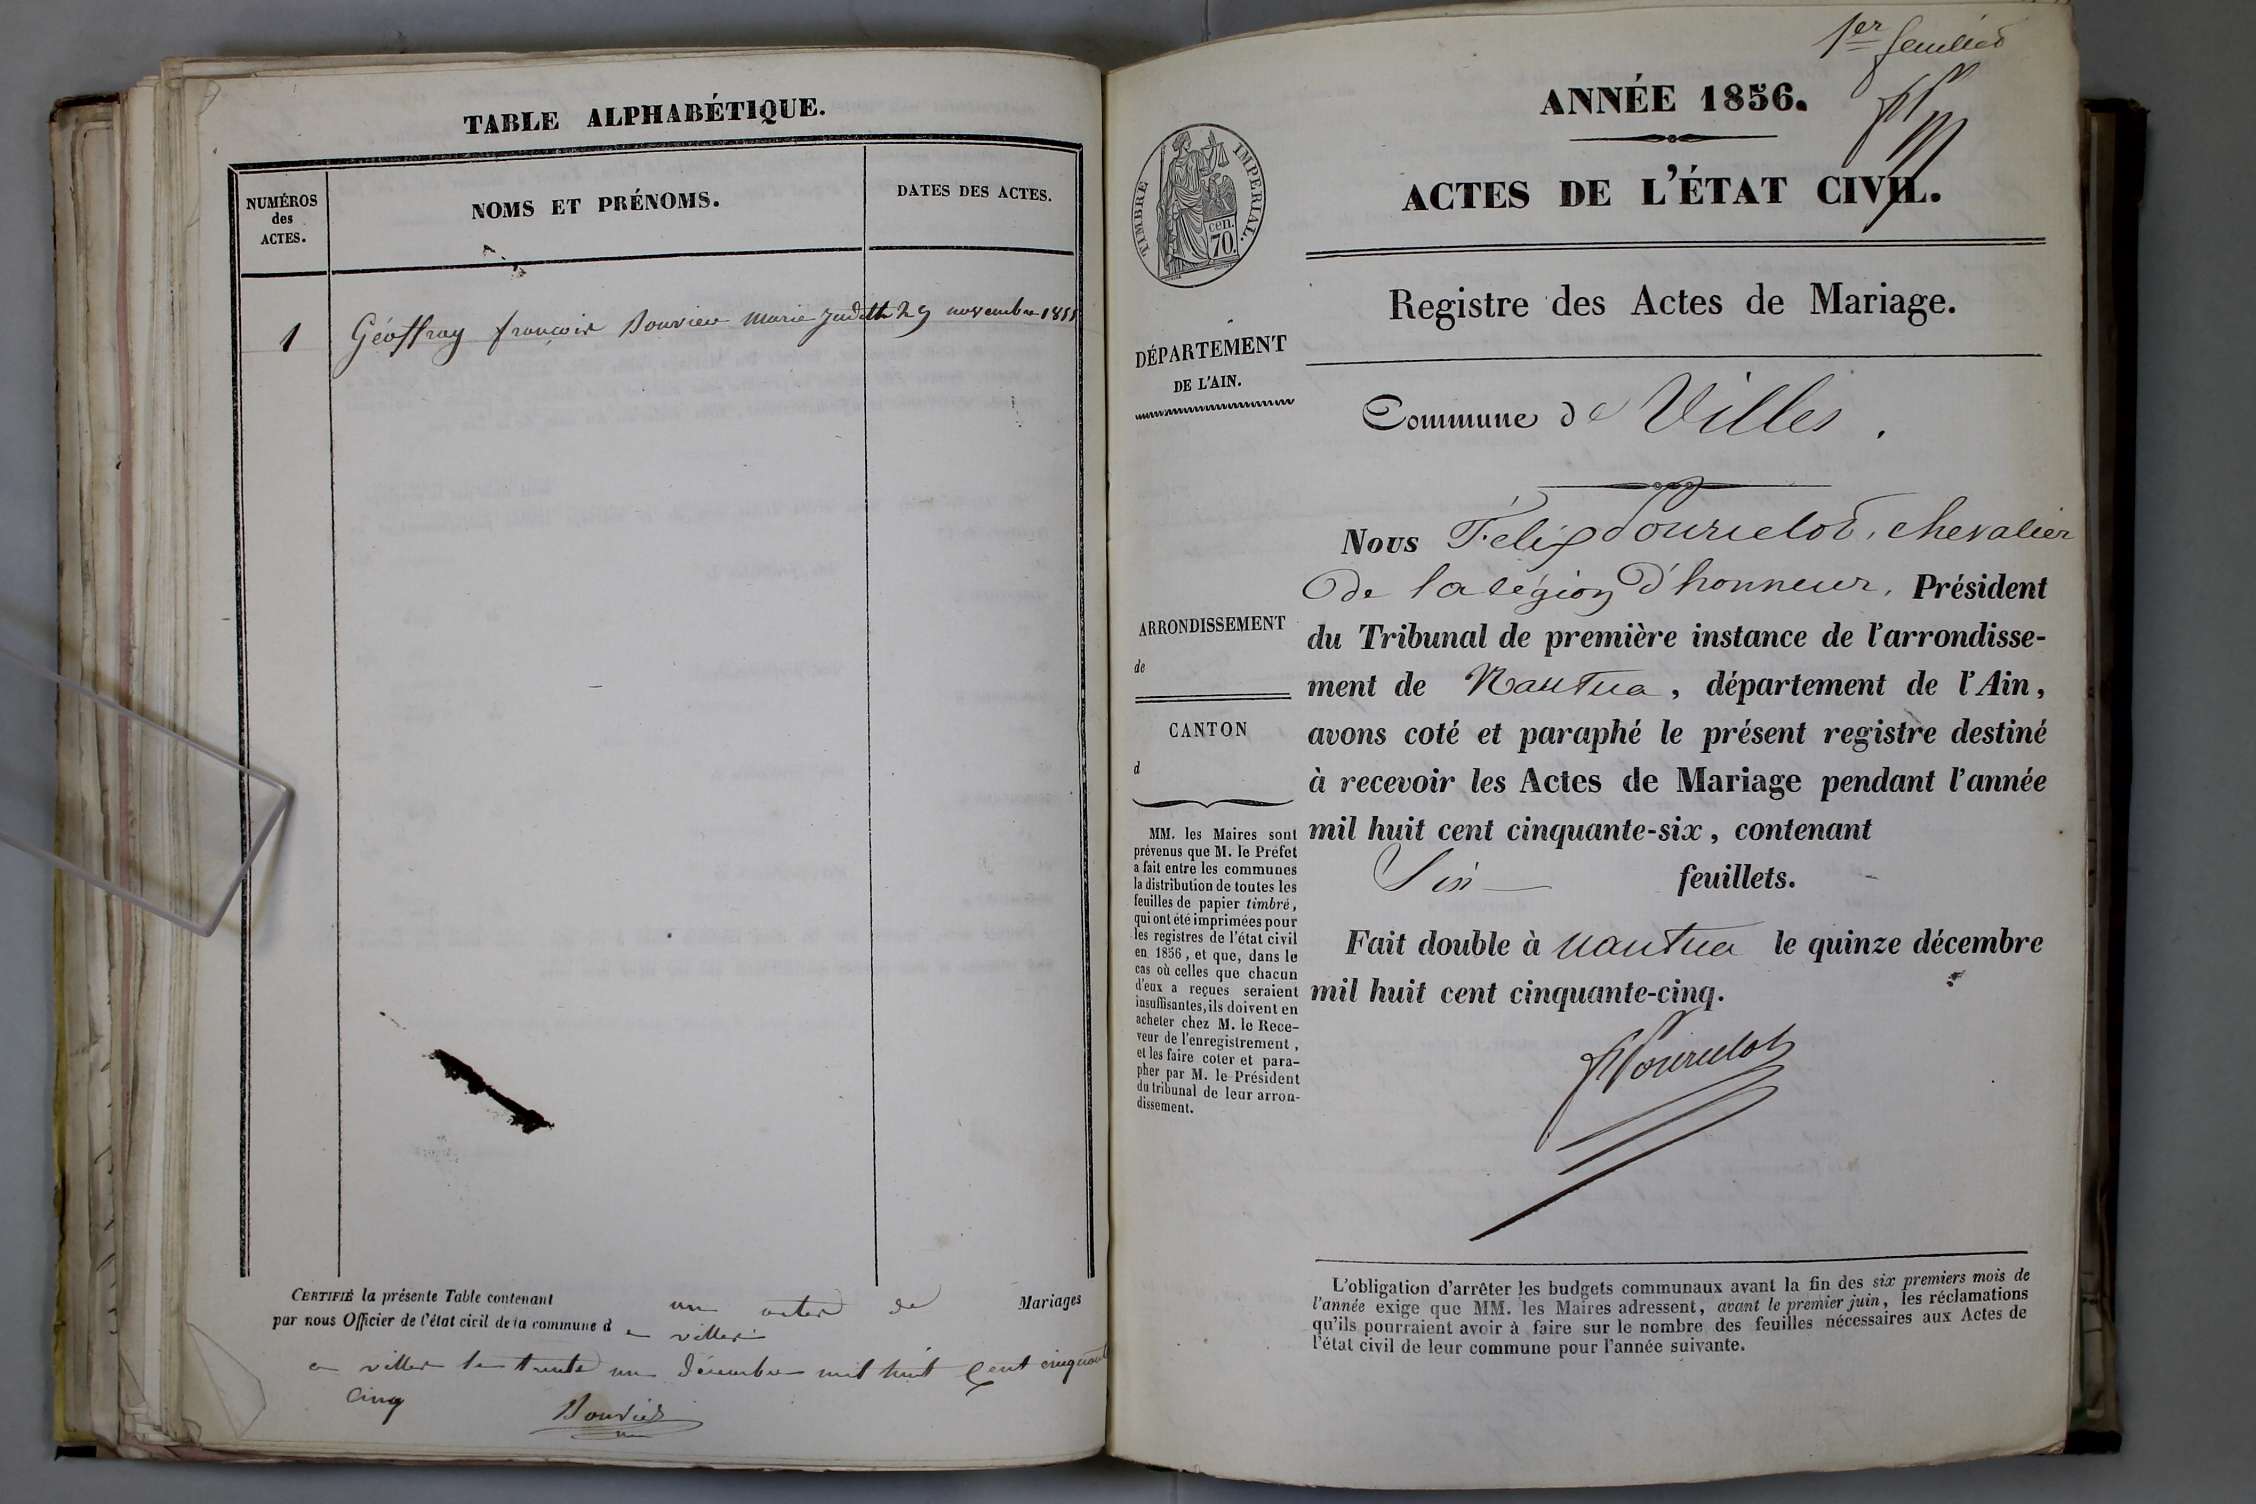 TABLE ALPHABÉTIQUE.
NUMÉROS
des
ACTES.
NOMS ET PRÉNOMS.
DATES DES ACTES.
1 Géoffray françois Bouvier marie Judith 29 novembre 1855
CERTIFIÉ la présente Table contenant un actes de Mariages
par nous Officier de l'état civil de la commune d e villes
a villes le trente un décembre mil huit cent cinquante
cinq
Bouvier
1er feuillet
ANNÉE 1856.
ACTES DE L'ÉTAT CIVIL.
TIMBRE IMPÉRIAL.
cen.
70.
Registre des Actes de Mariage.
DÉPARTEMENT
DE L'AIN.
Commune de Villes.
Nous Félix Pourcelot, chevalier
de la légion d'honneur, Président
du Tribunal de première instance de l'arrondisse-
ment de Nantua, département de l'Ain,
avons coté et paraphé le présent registre destiné
à recevoir les Actes de Mariage pendant l'année
mil huit cent cinquante-six, contenant
Six feuillets.
Fait double à nantua le quinze décembre
mil huit cent cinquante-cinq.
FPourcelot
ARRONDISSEMENT
de
CANTON
d
MM. les Maires sont
prévenus que M. le Préfet
a fait entre les communes
la distribution de toutes les
feuilles de papier timbré,
qui ont été imprimées pour
les registres de l'état civil
en 1856, et que, dans le
cas où celles que chacun
d'eux a reçues seraient
insuffisantes, ils doivent en
acheter chez M. le Rece-
veur de l'enregistrement,
et les faire coter et para-
pher par M. le Président
du tribunal de leur arron-
dissement.
L'obligation d'arrêter les budgets communaux avant la fin des six premiers mois de
l'année exige que MM. les Maires adressent, avant le premier juin, les réclamations
qu'ils pourraient avoir à faire sur le nombre des feuilles nécessaires aux Actes de
l'état civil de leur commune pour l'année suivante.